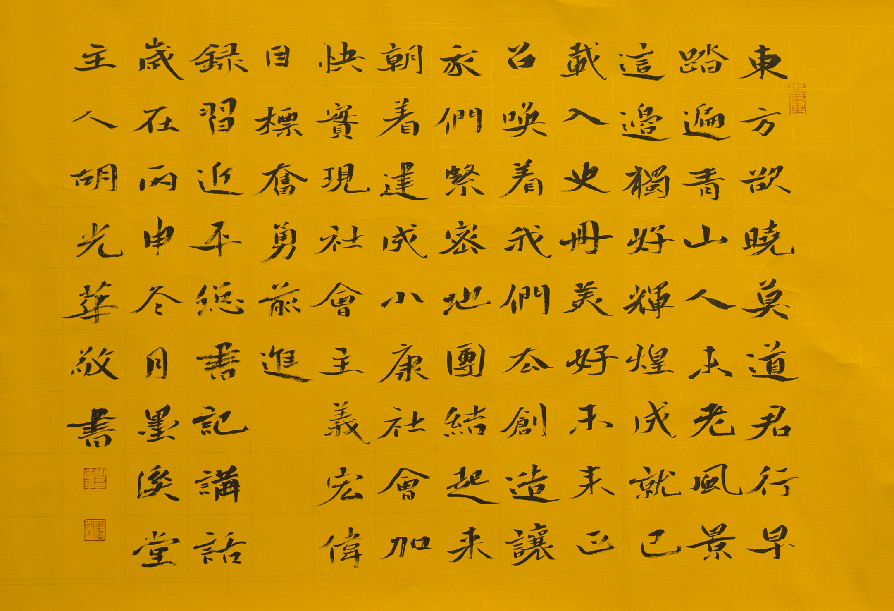 東方欲曉莫道君行早
踏遍青山人未老風景
這邊獨好輝煌成就已
載入史冊美好未来正
召喚着我們去創造讓
我們緊密地團結起来
朝着達成小康社會加
快實現社會主義宏偉
目標奮勇前進
録習近平総書記講話
歲在丙申冬月墨溪堂
主人胡光華敬書